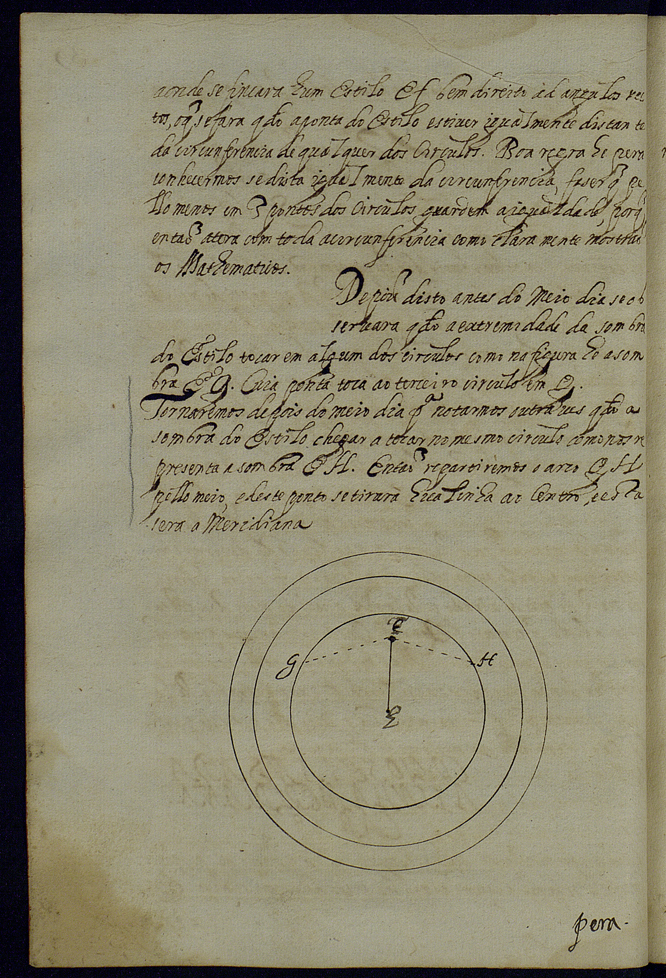 aonde se fincara hum Estilo Ef bem direito ad angulos rec
tos, oq̃ se fara qdõ a ponta do Estilo estiver igualmente distante
da circunferencia de qualquer dos Circulos. Boa regra he pera
conhecermos se dista igualmente da circunferencia, faser q̃ pe
llo menos em 3 pontos dos Circulos guardem a igualdade, porq̃
entaõ a tera com toda a circunferencia como claramente mostraõ
os Mathematicos.
Depois disto antes do Meio dia se ob
servara qdõ a extremidade da sombra
do Estilo tocar em algum dos circulos como na figura he a som
bra EG. Cuia ponta toca ao terceiro circulo em G.
Tornaremos depois do meio dia pª notarmos outra ves qdõ a
sombra do Estilo chegar a tocar no mesmo circulo como nos re
presenta a sombra EH. Entaõ repartiremos o arco GH
pello meio, e deste ponto se tirara hũa linha ao Centro, e esta
sera a Meridiana
G
H
E
pera.